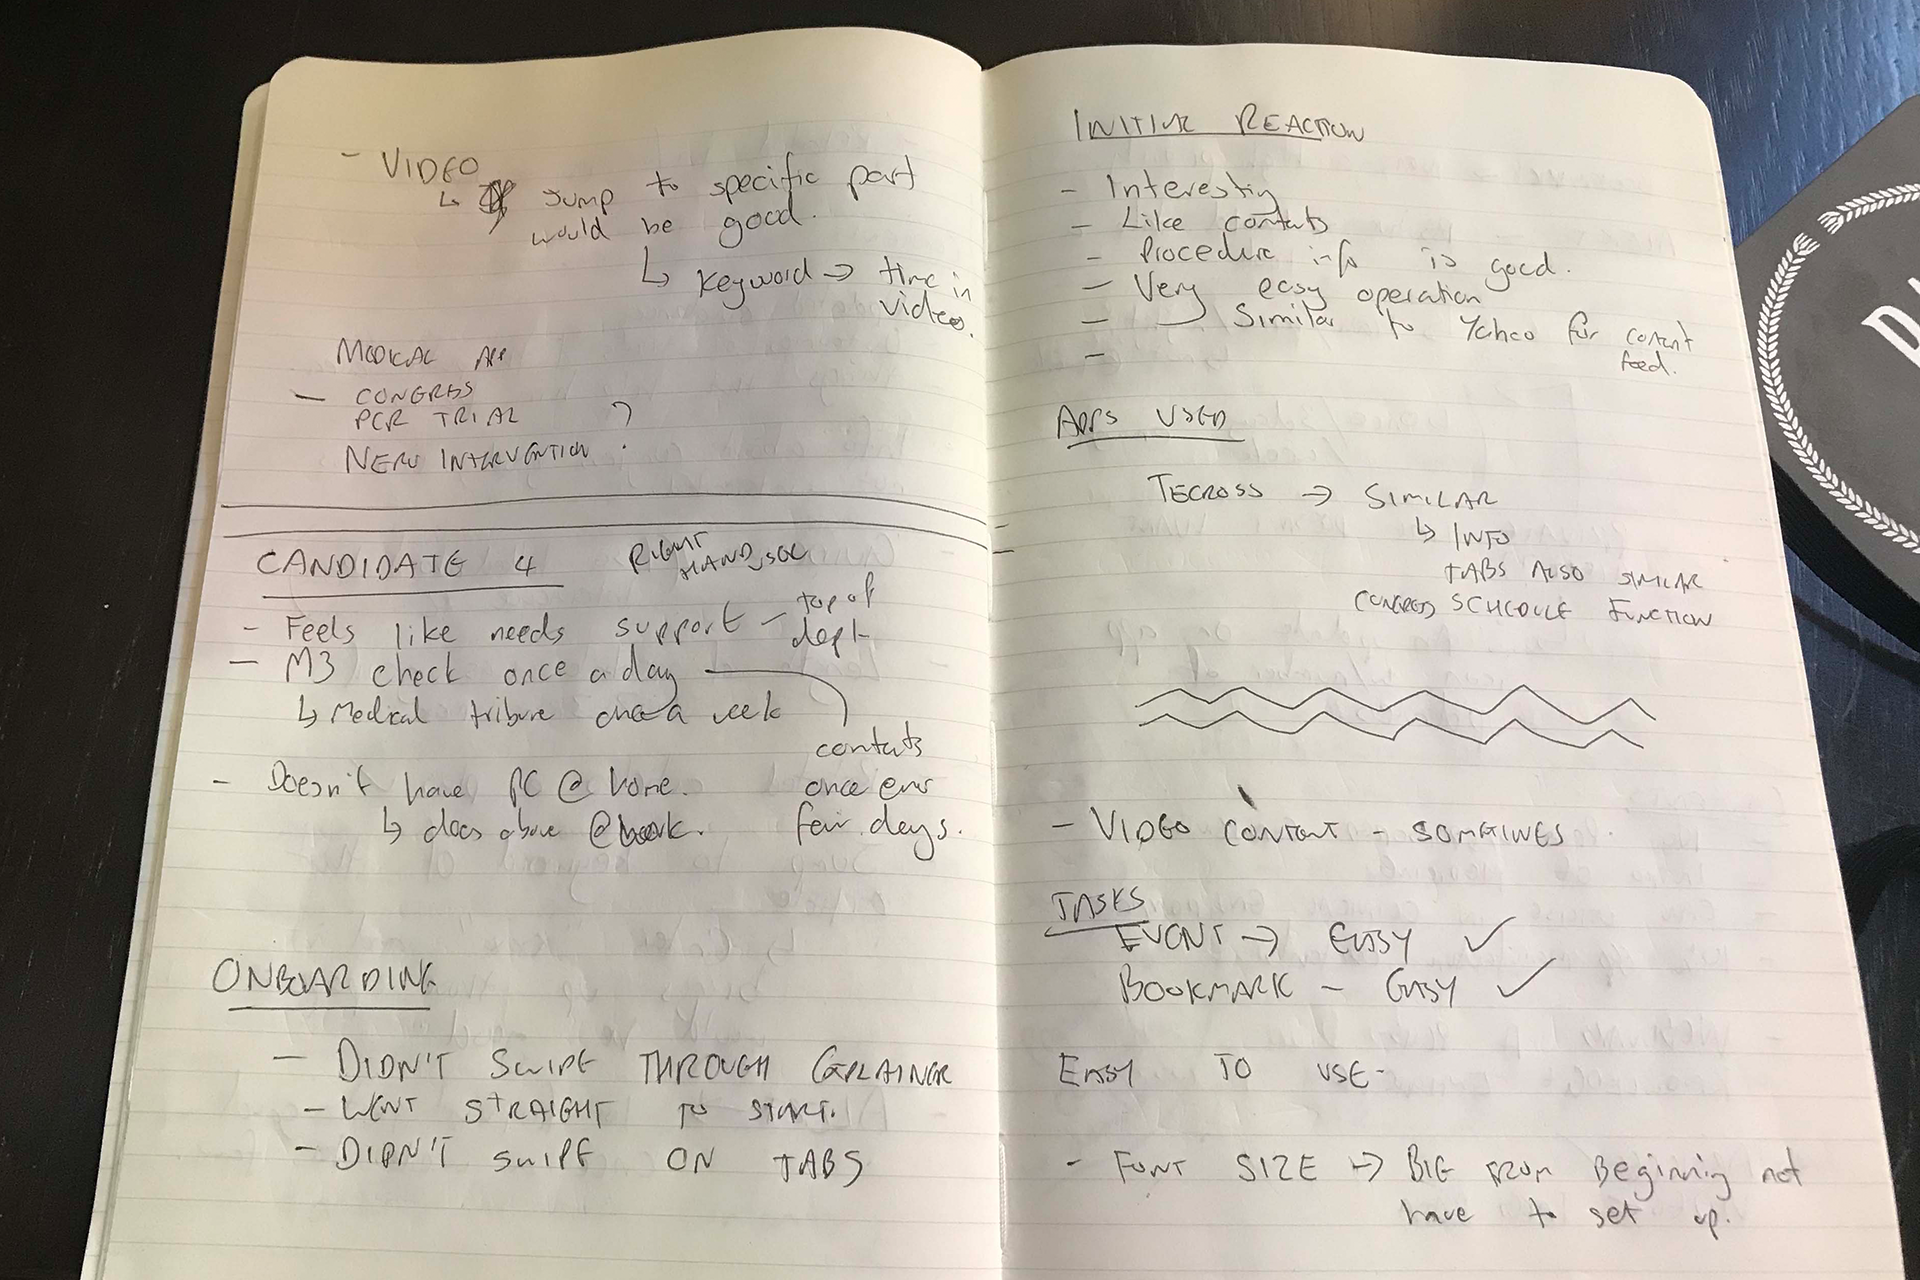 - VIDEO
↳ Jump to specific part
would be good.
↳ keyword → time in
video.
MEDICAL APP
- CONGRESS
PCR TRIAL ?
NERV INTERVENTION.
CANDIDATE 4
RIGHT
HAND, SGL
- Feels like needs support - top of
dept
- M3 check once a day
↳ Medical tribune once a week
contents
once every
few days.
- Doesn't have PC @ home.
↳ does above @work.
ONBOARDING
- DIDN'T SWIPE THROUGH EXPLAINER
- WENT STRAIGHT TO START.
- DIDN'T SWIPE ON TABS
INITIAL REACTION
- Interesting
- Like contents
- Procedure info is good.
- Very easy operation
- Similar to Yahoo for content
feed.
-
APPS USED
TECROSS → SIMILAR
↳ INFO
TABS ALSO SIMILAR
CONGRESS SCHEDULE FUNCTION
- VIDEO CONTENT - SOMETIMES
TASKS
EVENT → EASY ✓
BOOKMARK - EASY ✓
EASY TO USE-
- FONT SIZE → BIG FROM Beginning not
have to set up.
D